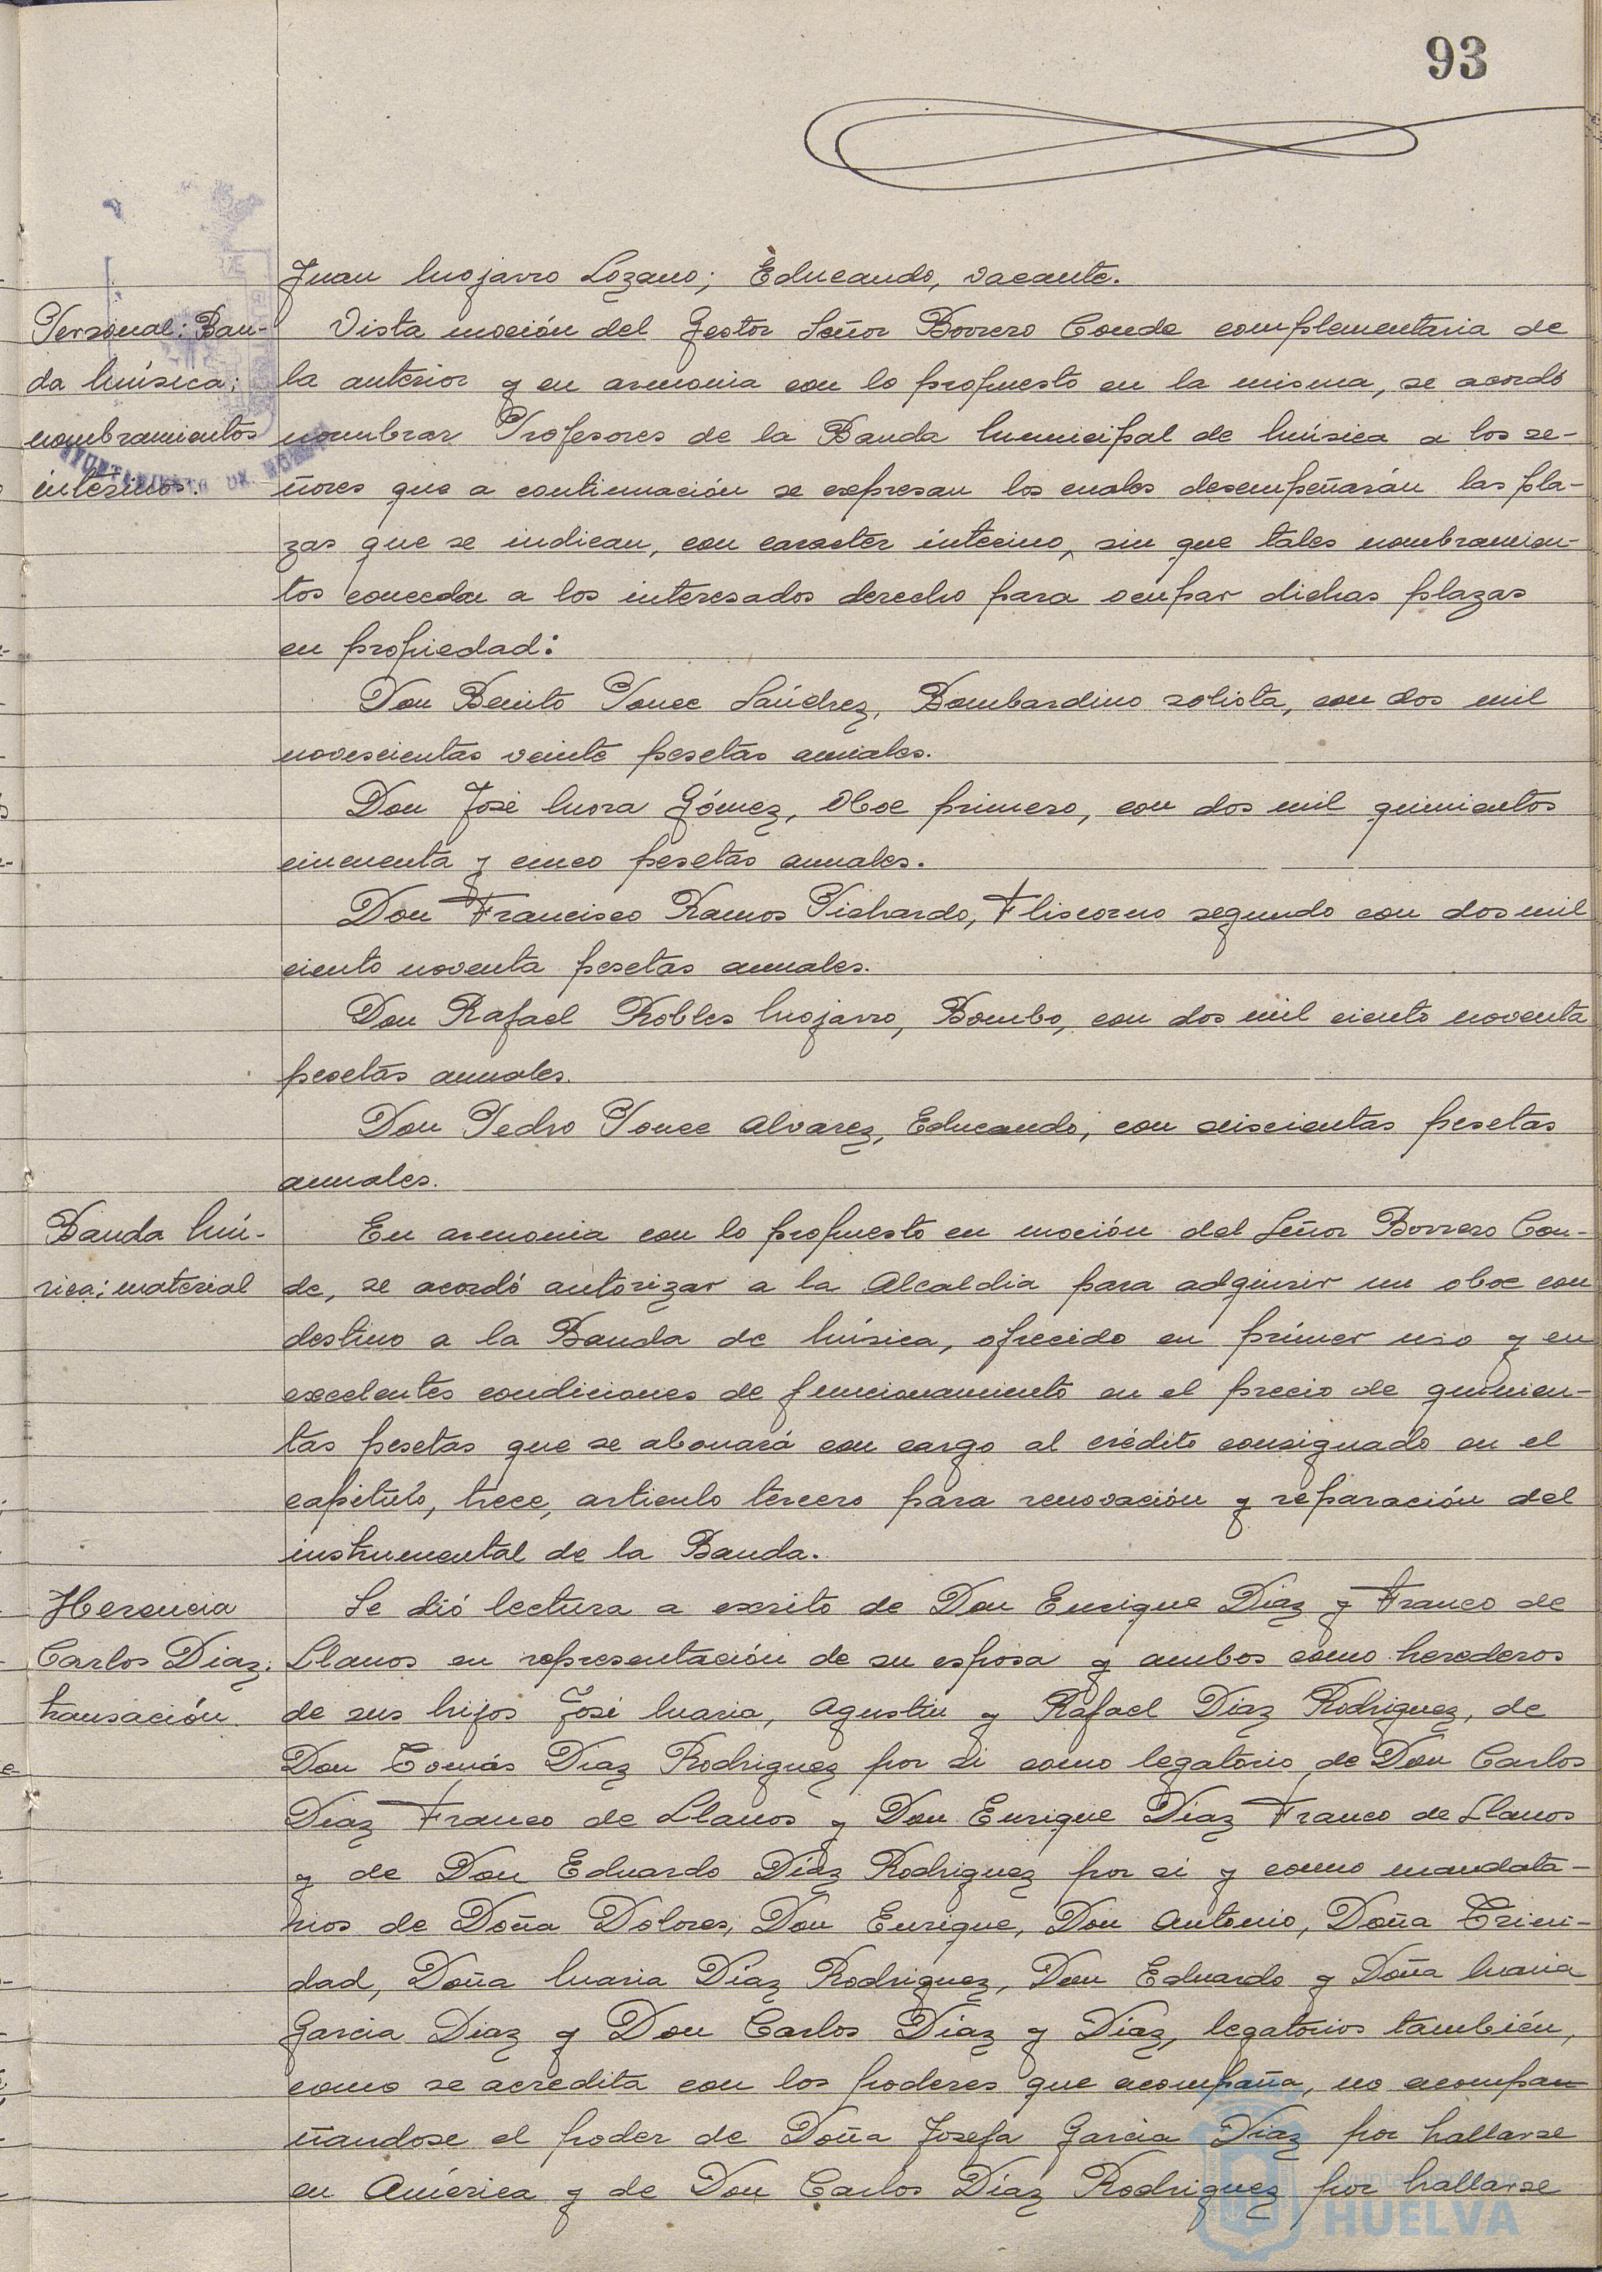 93
Juan Mojarro Lózano; Educando, vacante.
Personal: Ban-
da Música;
nombramientos
interinos.
Vista moción del Gestor Señor Borrero Conde complementaria de
la anterior y en armonia con lo propuesto en la misma, se acordó
nombrar Profesores de la Banda Municipal de Música a los se-
ñores que a continuación se expresan los cuales desempeñarán las pla-
zas que se indican, con caracter interino, sin que tales nombramien-
tos concedan a los interesados derecho para ocupar dichas plazas
en propiedad:
Don Benito Ponce Sánchez, Bombardino solista, con dos mil
novescientas veinte pesetas anuales.
Don José Mora Gómez, Oboe primero, con dos mil quinientos
cincuenta y cinco pesetas anuales.
Don Francisco Ramos Pichardo, Fliscorno segundo con dos mil
ciento noventa pesetas anuales.
Don Rafael Robles Mojarro, Bombo, con dos mil ciento noventa
pesetas anuales.
Don Pedro Ponce Alvarez, Educando, con seiscientas pesetas
anuales.
Banda Mú-
sica; material
En armonia con lo propuesto en moción del Señor Borrero Con-
de, se acordó autorizar a la Alcaldia para adquirir un oboe con
destino a la Banda de Música, ofrecido en primer uso y en
excelentes condiciones de funcionamiento en el precio de quinien-
tas pesetas que se abonará con cargo al crédito consignado en el
capitulo, trece, articulo tercero para renovación y reparación del
instrumental de la Banda.
Herencia
Carlos Diaz;
transación
Se dió lectura a escrito de Don Enrique Diaz y Franco de
Llanos en representación de su esposa y ambos como herederos
de sus hijos José Maria, Agustin y Rafael Diaz Rodriguez, de
Don Tomás Diaz Rodriguez por si como legatorio de Don Carlos
Diaz Franco de Llanos y Don Enrique Diaz Franco de Llanos
y de Don Eduardo Díaz Rodriguez por si y como mandata-
rios de Doña Dolores, Don Enrique, Don Antonio, Doña Trini-
dad, Doña Maria Díaz Rodriguez, Don Eduardo y Doña Maria
Garcia Diaz y Don Carlos Díaz y Díaz, legatorios también,
como se acredita con los poderes que acompaña, no acompan
ñandose el poder de Doña Josefa Garcia Diaz por hallarse
en América y de Don Carlos Díaz Rodriguez por hallarse
Ayuntamiento de
HUELVA